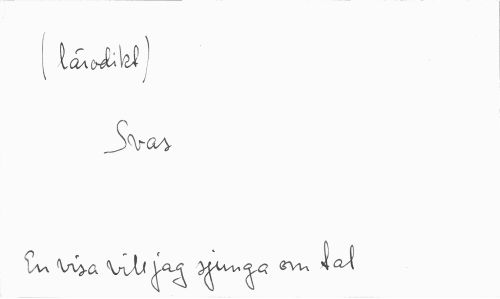 (lärodikt)
Svas
En visa vill jag sjunga om tal